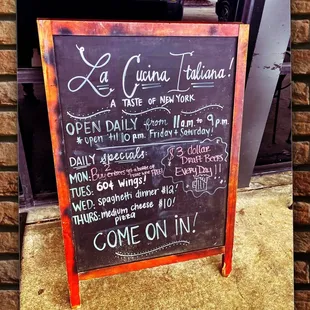 La Cucina Italiana!
A TASTE OF NEW YORK
OPEN DAILY from 11 a.m. to 9 p.m.
* open 'til 10 p.m. Friday + Saturday!
DAILY specials:
MON:
TUES: 60¢ Wings!
WED: spaghetti dinner $12
THURS: medium cheese $10!
pizza
3 dollar
Draft Beers
Every Day!
COME ON IN!